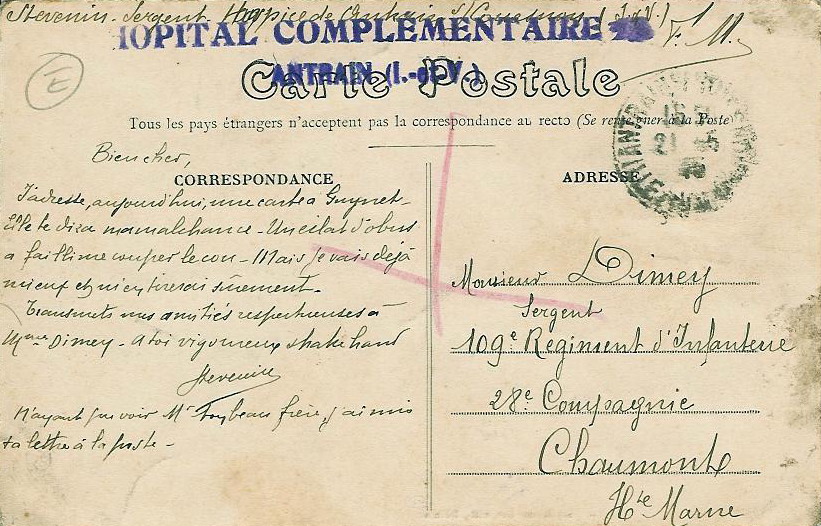 Stevenin - Sergent Hospice de Antrain s/ Couesnon (I. & V.)
HOPITAL COMPLEMENTAIRE
F. M.
ANTRAIN (I.-et-V.)
Carte Postale
E
Tous les pays étrangers n'acceptent pas la correspondance au recto (Se renseigner à la Poste)
CORRESPONDANCE
Bien cher,
J'adresse, aujourd'hui, une carte à Guynet -
Elle te dira ma malchance - Un éclat d'obus
a failli me couper le cou - Mais je vais déjà
mieux et m'en tirerai sûrement.
Transmets mes amitiés respectueuses à
Mme Dimey - A toi vigoureux shake hand
Stevenin
N'ayant pu voir Mr frère, j'ai mis
ta lettre à la poste -
ADRESSE
21 - 5
Monsieur Dimey
Sergent
109e Regiment d'Infanterie
28e Compagnie
Chaumont
Hte Marne